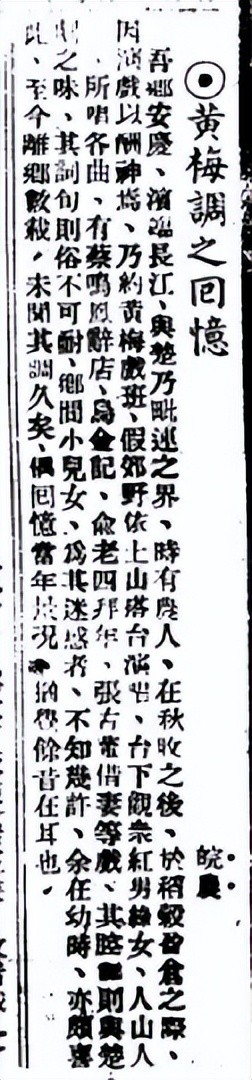 黄梅調之回憶
皖慶
吾鄉安慶、濱臨長江、與楚乃毗連之界、時有農人、在秋收之後、於稻穀登倉之際、
因演戲以酬神焉、乃約黄梅戲班、假郊野依土山搭台演唱、台下觀衆紅男綠女、人山人
、所唱各曲、有蔡鳴鳳辭店、烏金記、俞老四拜年、張古董借妻等戲、其腔調則與楚
劇之味、其詞句則俗不可耐、鄉間小兒女、爲其迷惑者、不知幾許、余在幼時、亦頗喜
此、至今離鄉數載、未聞其調久矣、偶回憶當年景况、猶覺餘音在耳也。